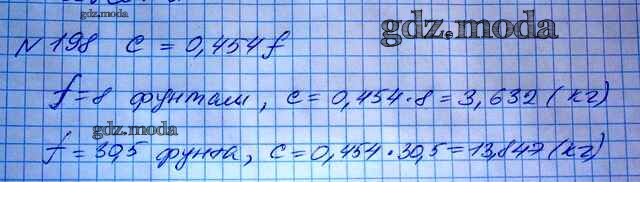 gdz.moda
№ 198 c = 0,454f
gdz.moda
f=8 фунтам, c= 0,454·8=3,632 (кг)
gdz.moda
f = 30,5 фунта, c=0,454·30,5=13,847 (кг)